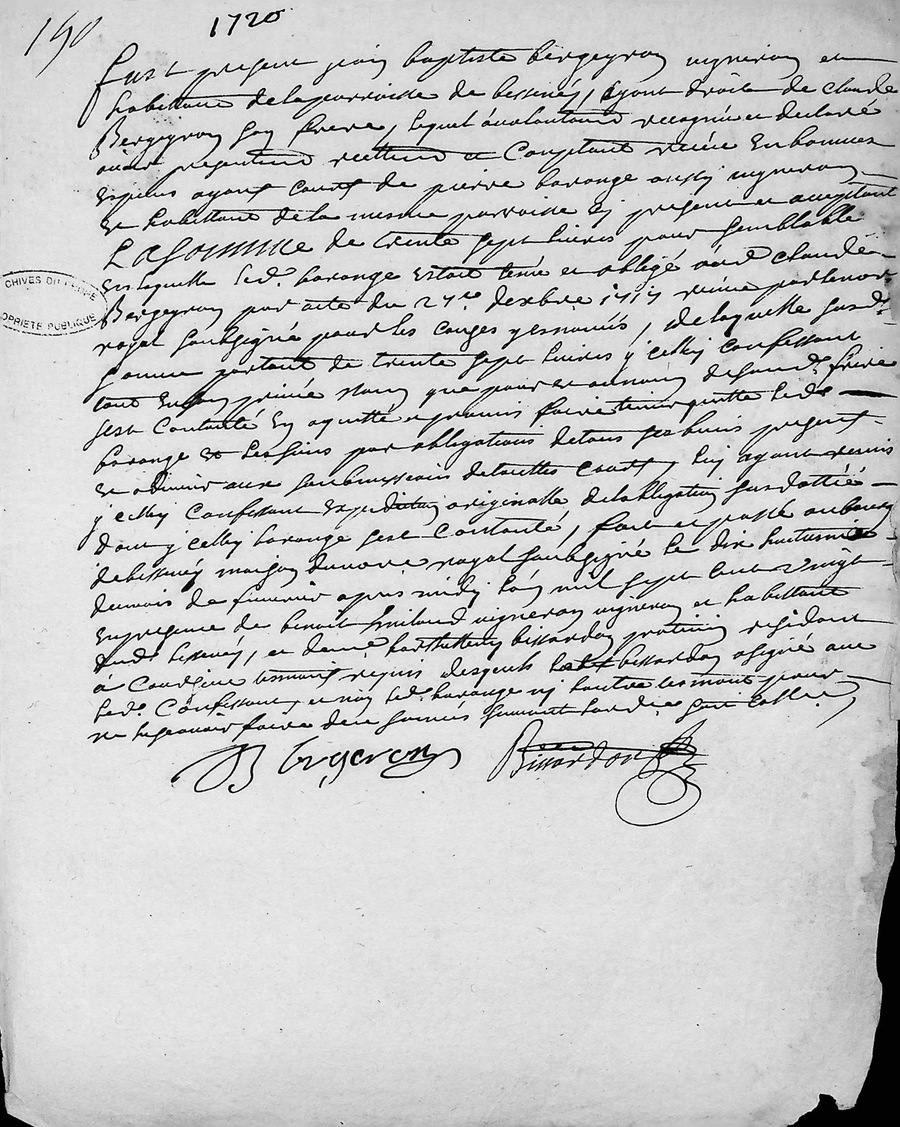 190
1720
fust present jean baptiste bergeyron vigneron et
habittant de la parroisse de bessinés, ayant droit de claude
Bergeyron son frere, lequel a vollontairement recognu et declaré
avoir presentement et Comptant receu en bonnes
espesses ayant cours de pierre barange aussy vigneron
et habittant de la mesme parroisse icy present et acceptant
La somme de trente sept livres pour semblable
en laquelle led. barange estoit tenu et obligé aud. claude
Bergeyron par acte du 27e. dexbre 1717 receu par le no.re
royal soubsigné pour les causes y esnoncés, de laquelle susd.
somme portant de trente sept livres y celluy confessant
tant en son privé nom que pour et au nom de son d. frere
sest Contanté en a quitté et promis faire tenir quitte led.
barange et les siens par obligations de tous ses biens present
et advenir aux soubmissions de touttes Cours, luy ayant remis
y celluy Confessant expedition originalle de lobligation susdattée
dont y celluy barange sest Contanté, fait et passé au bourg
de bessinés maison du no.re royal soubsigné le dix huitiesme
du mois de feuvrier apres midy lan mil sept cent vingt
en presence de benoit vigneron vigneron et habittant
dud. bessinés, et de bissardon praticien residant
à tesmoins requis desquels led. bissardon a signé avec
led. Confessant, et non led. barange ny lautre tesmoins pour
ne le sçavoir faire de ce sommés suivant lordre
Bergeron Bissardon
CHIVES DU
OPRIETE PUBLIQUE